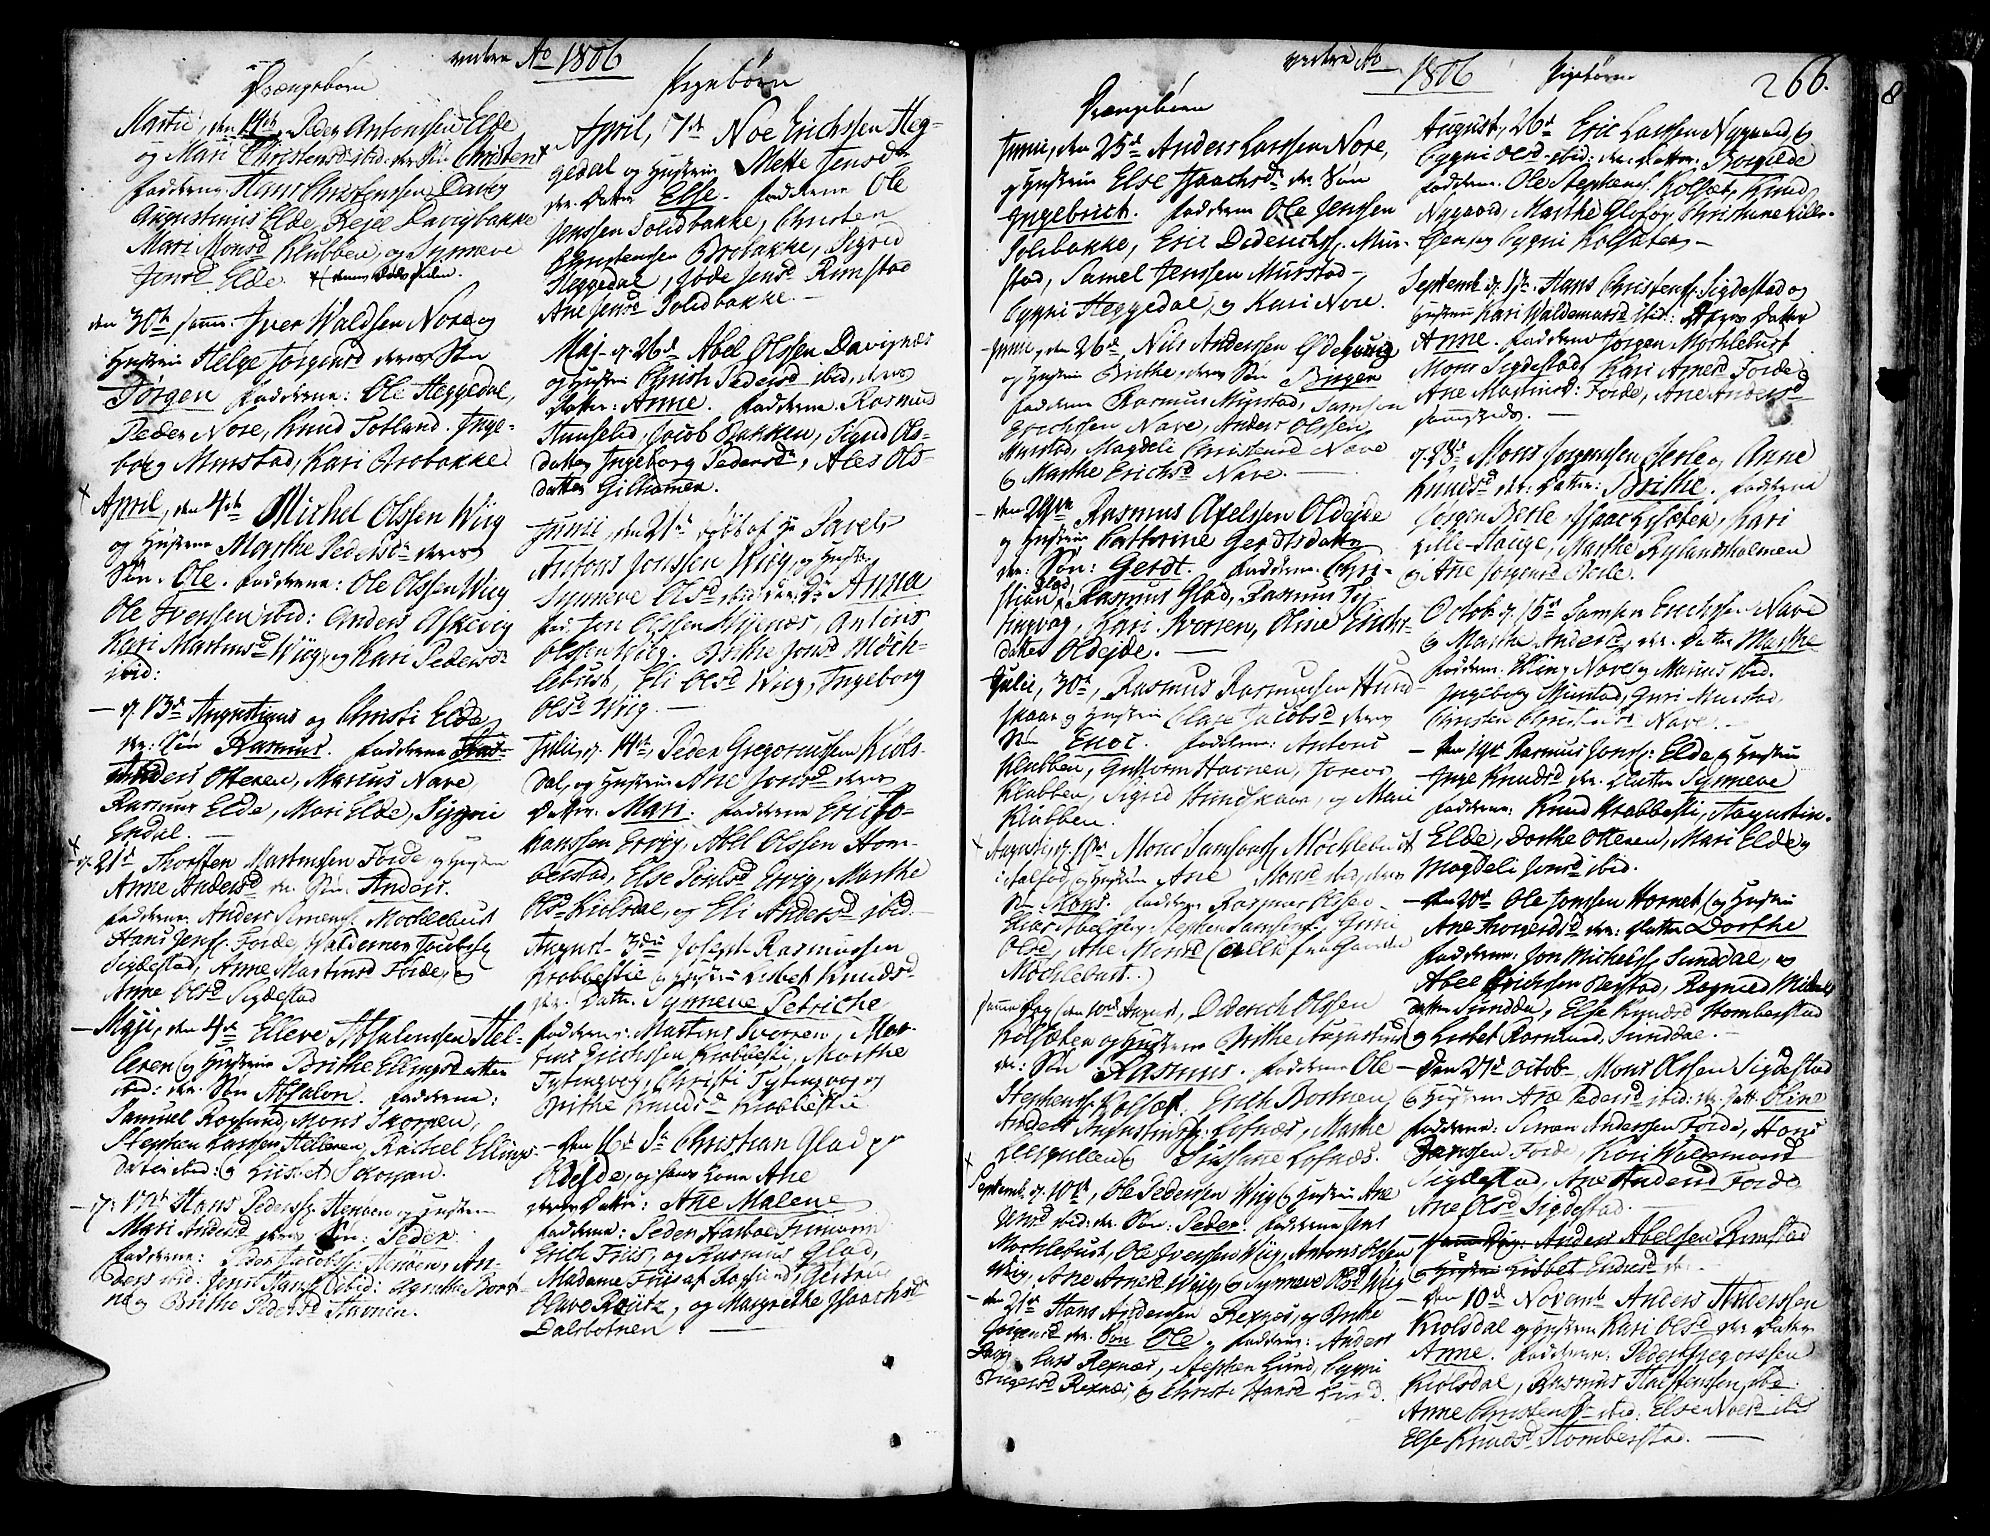 vedere Ao 1806
Drængebørn
Martii, den 19de Peder Antonssen Elde
og Mari Christensd ibid: der: Søn Christen
fadderne Hans Christenssen Davig
Augustinus Elde, Davigbakke
Mari Monsd Klubben, og Synneve
Jensd Elde
den 30te samme: Iver Waldsen Nore og
Hustrue Helge Jørgensd deres Søn
Jørgen fadderne: Ole Heggedal,
Peder Nore, Knud Totland. Inge-
borg Murstad, Kari Brobakke
April, den 4de Michel Olssen Wiig
og Hustrue Marthe Pedersd deres
Søn. Ole. fadderne: Ole Olssen Wiig
Ole Iverssen ibid: Anders Askevig
Kari Martinusd Wiig, og Kari Pedersd
ibid:
— d. 13d Augustinus og Christi Elde
der: Søn Rasmus. fadderne
Anders Otteren, Marius Nave,
Rasmus Elde, Mari Elde, Sygni
Endal. —
d. 21d Thorsten Martinssen Førde, og Hustrue
Anne Andersd der: Søn: Anders.
fadderne: Anders Simenss. Mochlebust
Hans Jenss. Førde, Waldemar Jacobss.
Sigdestad, Anne Martinsd Førde, og
Anne Olsd Sigdestad
— Maji, den 4de Elleve Absalonssen Hel-
leren og Hustrue Brithe Ellingsdatter
ibid: der: Søn Absalon. fadderne:
Samuel Rogsund, Mons Skorpen,
Stephen Larssen Helleren, Rachel Ellings-
datter ibid: og Lisbet Skorpen.
— d. 17de Hans Pederss. Henøen og Hustrue
Mari Andersd deres Søn: Peder.
fadderne: Peder Jacobss. Henøen, An-
ders ibid: Jens Hanss. ibid: Agnethe
og Brithe Pedersd Hamnen.
Pigebørn
April, 7de Noe Erichssen Heg-
gedal og Hustrue Mette Jensd
der: Datter Else. fadderne Ole
Jenssen Solidbakke, Christen
Christenssen Brobakke, Sigrid
Heggedal, Jøde Jensd Rimstad
Ane Jensd Solidbakke. —
Maj d. 26de Abel Olssen Davignæs
og Hustrue Christi Pedersd ibid, deres
Datter: Anne. fadderne. Rasmus
Hunfeld, Jacob Bakken, Sigrid Ols-
datter Ingeborg Pedersd, Ales Ols-
datter Gilhamen.
Junii, den 21de
Antons Jonssen Wiig, og Hustrue
Synneve Olsd ibid: der: Dr Anna
fad: Jon Olssen Myenæs, Antonis
Olssen Wiig. Brithe Jonsd Møch-
lebust, Eli Olsd Wiig, Ingeborg
Olsd Wiig. —
Julii, d. 19de, Peder Gregoriussen Kiøls-
dal, og Hustrue Ane Jonsd deres
Datter. Mari. fadderne Eric Jo-
hanssen Ervig, Abel Olssen Hom-
bestad, Else Poulsd Ervig, Marthe
Olsd Kiølsdal, og Eli Andersd ibid. —
August. 3die Joseph Rasmussen
Krabbestie og Hustrue Lisbet Knudsd
der: Datter. Synneve Petriche,
fadderne: Martins Skorpen, Mar-
tins Erichssen Krabbesti, Marthe
Tytingvog, Christi Tytingvog og
Brithe Knudsd Krabbestie
— Den 16de Sr Christian Glad
Oldeide, og Kone Ane
deres Datter: Ane Malene
fadderne: Peder Harboe
Erich Friis, og Rasmus Glad,
Madame Friis af Rogsund, Gertrue
Olave Reutz, og Margrethe Isaachsd
Dalsbotnen. —
vedere Ao 1806 266.
Drængebørn
Junii, den 25de Anders Larssen Nore,
og Hustrue Else Isaachsd der: Søn
Ingebrich. fadderne Ole Jenssen
Solibakke, Eric Dederichss. Mur-
stad, Samel Jenssen Murstad —
Sygni Heggedal, og Kari Nore.
— Junii, den 26de Nils Anderssen Eldevig
og Hustrue Brithe, deres Søn Birgen
fadderne Rasmus Murstad, Samsen
Erichssen Nave, Anders Olssen
Murstad, Magdeli Christensd Nave
og Marthe Erichsd Nave. —
— den 29de Rasmus Axelssen Oldeide
og Hustrue Cathrine Gerdtsdatter
der: Søn: Gerdt. fadderne Chri-
stian Glad, Rasmus Glad, Rasmus Ty-
tingvog, Kari Skorpen, Oline Erichs-
datter Oldeide. —
Julii, 30te, Rasmus Rasmussen Hund-
skaar og Hustrue Olave Jacobsd deres
Søn Enoc. fadderne: Antons
Klubben, Guttorm Havnen, Joseph
Klubben, Sigrid Hundskaar, og Mari
Klubben.
Augusti, d. Mons Samsonss. Mochlebust
i Aalfod, og Hustrue Ane Monsd ibid, deres
Søn Mons. fadderne Rasmus Olssen —
Elias Abelss. Stephen Samsonss. Gurie
Olsd, Ane Monsd (alle fra Gaarden
Mochlebust.)
samme Dag (den 10de August, Dederich Olssen
Kolsæten og Hustrue Brithe Augustinusd
der: Søn Rasmus. fadderne Ole
Stephenss. Kolset. Erich Bortnen
Anders Augustinuss. Lofnæs, Marthe
og Susanne Lofnæs.
Septemb. d. 10de, Ole Pederssen Wiig og Hustrue Ane
Jensd ibid: der: Søn: Peder. fadderne Jens
Mochlebust, Ole Iverssen Wiig, Antons Olssen
Wiig, Ane Arnesd Wiig, og Synneve Olsd Wiig
— den 21de Hans Anderssen Rexnæs, og Brithe
Jørgensd der: Søn Ole fadderne: Anders
Lars Rexnæs, Stephen Lund, Sygni
Rexnæs, og Christi Hansd Lund.
Pigebørn
August, 26de Eric Larssen Nygaard, og
Sygni Olsd ibid: der: Datter. Borgilde
fadderne. Ole Stephenss. Kolset, Knud
Nygaard, Marthe Christiane Lille-
og Sygni Kolsæter, —
Septemb. d. 17de Hans Christenss. Sigdestad og
Hustrue Kari Waldemarsd ibid: Deres Datter
Anne. fadderne Jørgen Mochlebust
Mons Sigdestad, Kari Arnesd Førde,
Ane Martinusd: Førde, Ane Andersd
sammesteds. —
d. 28de Mons Jørgenssen Berle og Anne
Knudsd der: Datter: Brithe. fadderne
Jørgen Berle, Isaach Sæter, Kari
Lille-Hauge, Marthe Rylandsholmen
og Ane Jørgensd Berle.
Octob. d. 15de Samsen Erichssen Nave
og Marthe Andersd, der: Datter Marthe
fadderne: Elling Nave og Marius ibid.
Ingeborg Murstad, Guri Murstad,
Christen Christensd Nave. —
— Den 19de Rasmus Jonss: Elde og Hustrue
Inge Knudsd der: Datter Synneve
fadderne: Knud Krabbesti, Augustin.
Elde, Dorthe Otteren, Mari Elde og
Magdeli Jonsd ibid.
— Den 20de Ole Jonssen Hornet og Hustrue
Ane Thoresd der: Datter Dorthe
fadderne: Jon Michelss. Sunddal, og
Abel Erichsen Reistad, Ragnild Michels-
datter Sunddal, Else Knudsd Homberstad
og Lisbet Rasmusd, Sunddal. —
— Den 27de Octob. Mons Olssen Sigdestad
og Hustrue Ane Pedersd ibid: der: Datt: Oline
fadderne: Simon Anderssen Førde, Hans
Janssen Førde, Kari Waldemarsd
Sigdestad, Ane Andersd Førde
Ane Olsd Sigdestad. —
samme Dag: Anders Abelssen Rimstad
og Hustrue Lisbet Endresd der: —
— Den 10de Novemb. Anders Anderssen
Kiølsdal og Hustrue Kari Olsd der: Datter
Anne. fadderne: Peder Gregorssen
Kiølsdal, Rasmus Staffenssen, ibid:
Anne Christensd ibid: Elsen ibid
Else Knudsd Homberstad. —